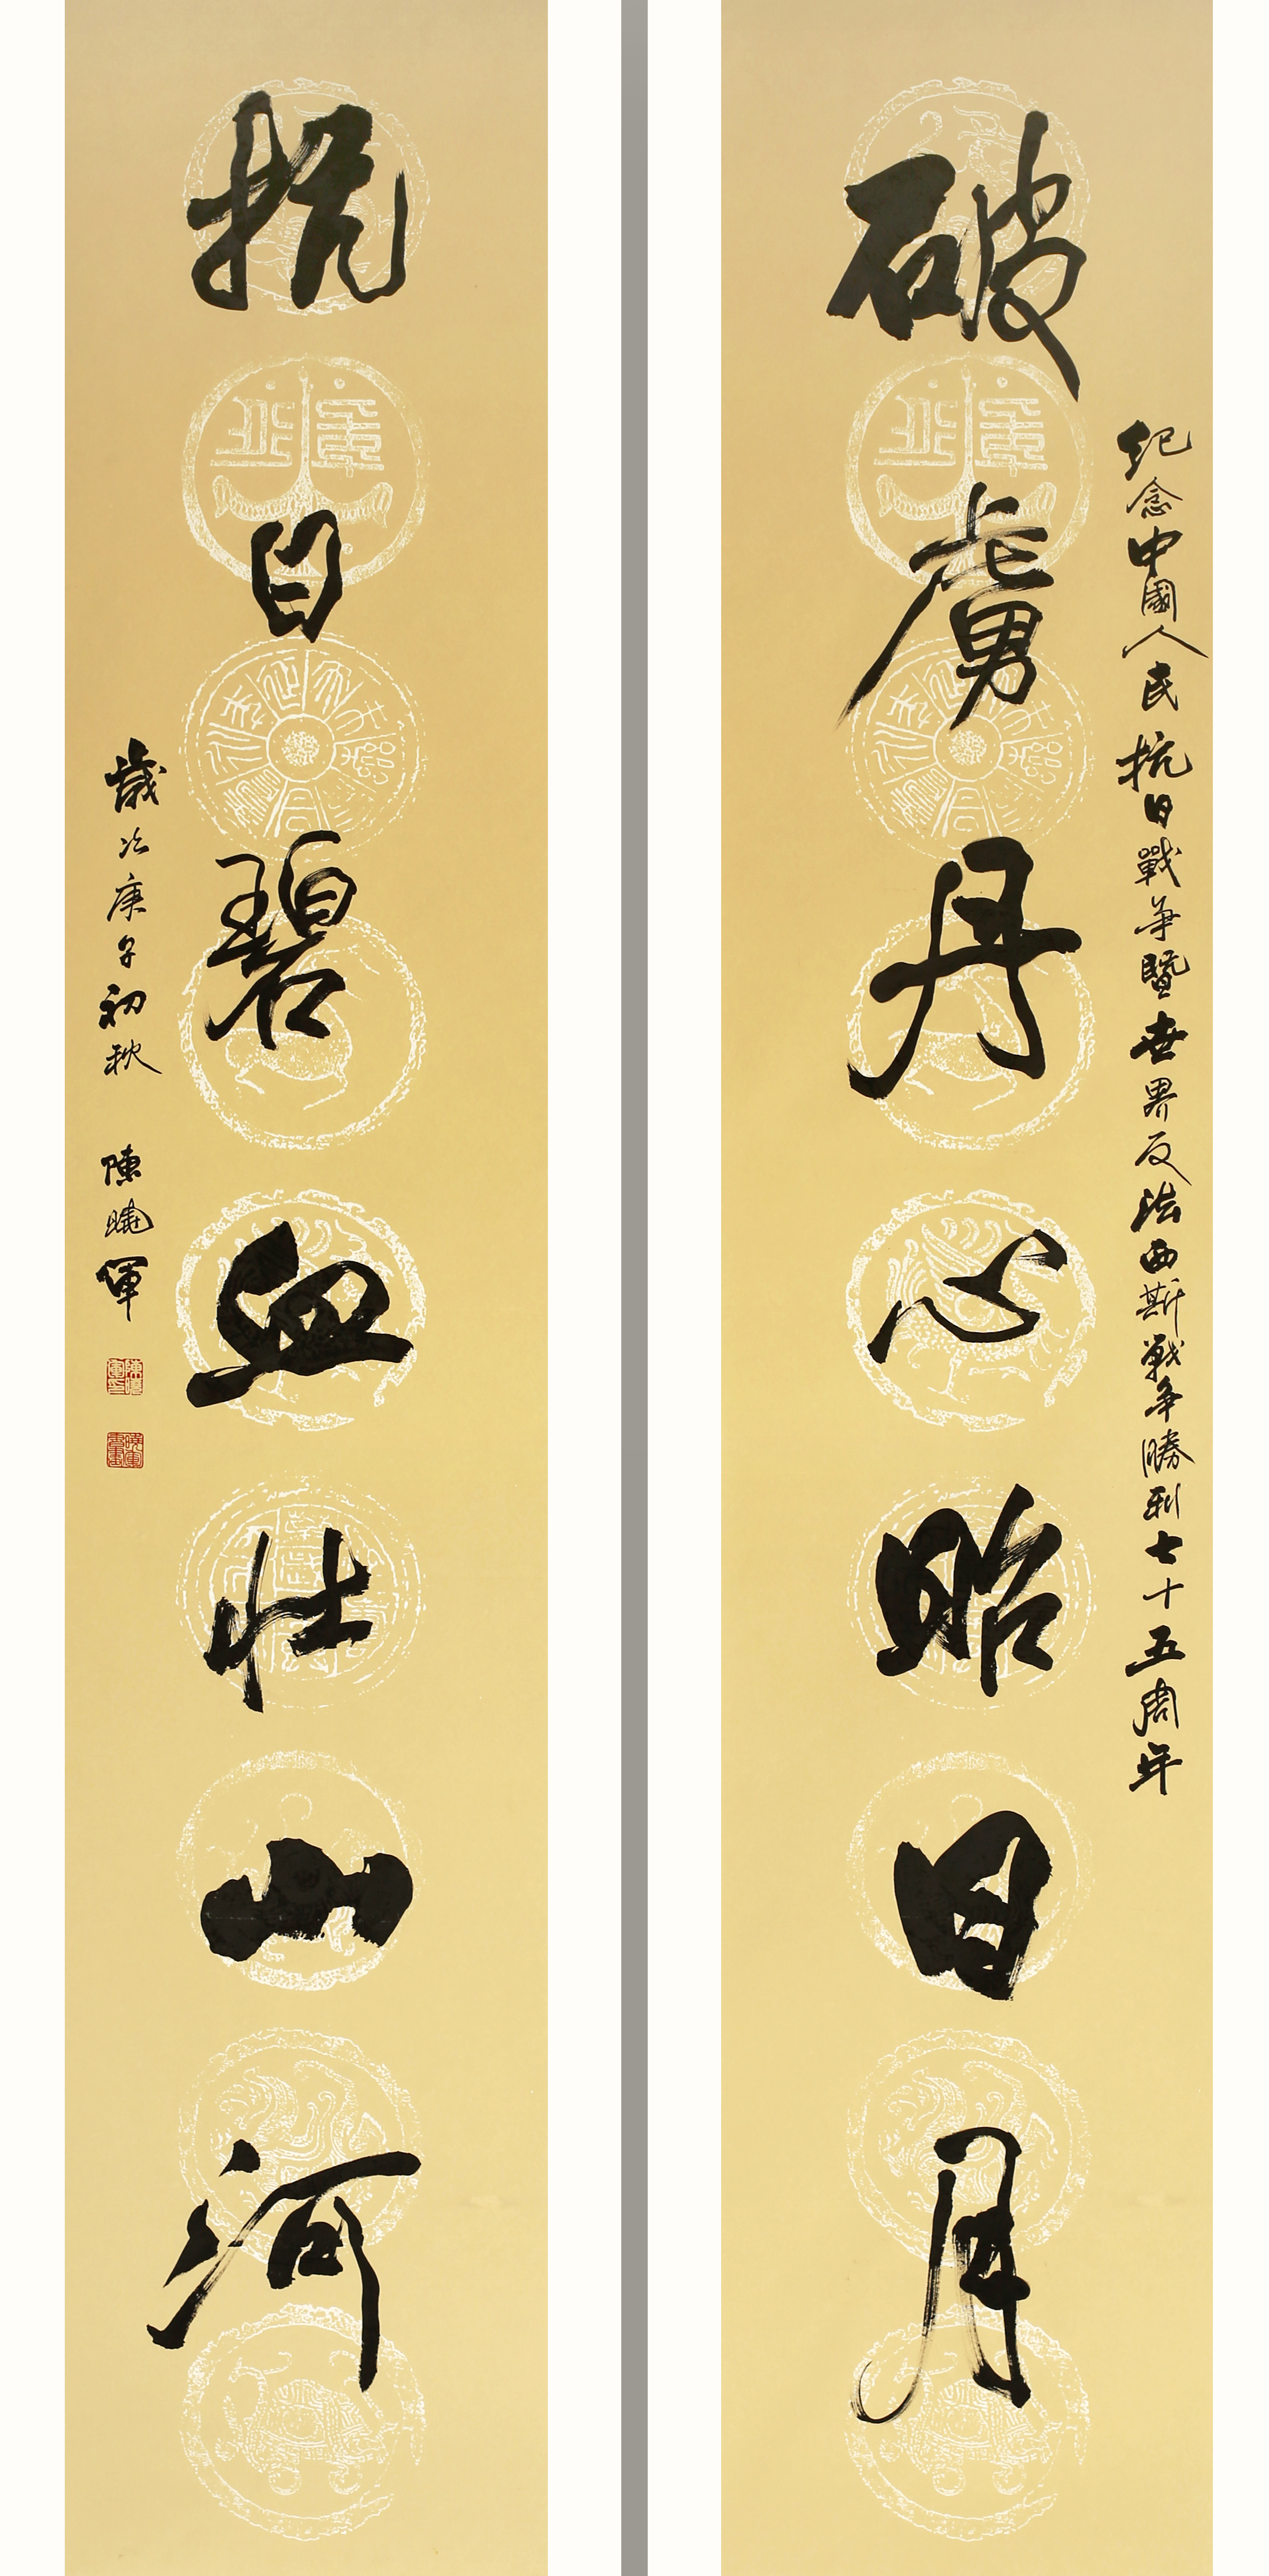 紀念中國人民抗日戰争暨世界反法西斯戰争勝利七十五周年
破虜丹心昭日月
抗日碧血壮山河
歲次庚子初秋 陳曉軍